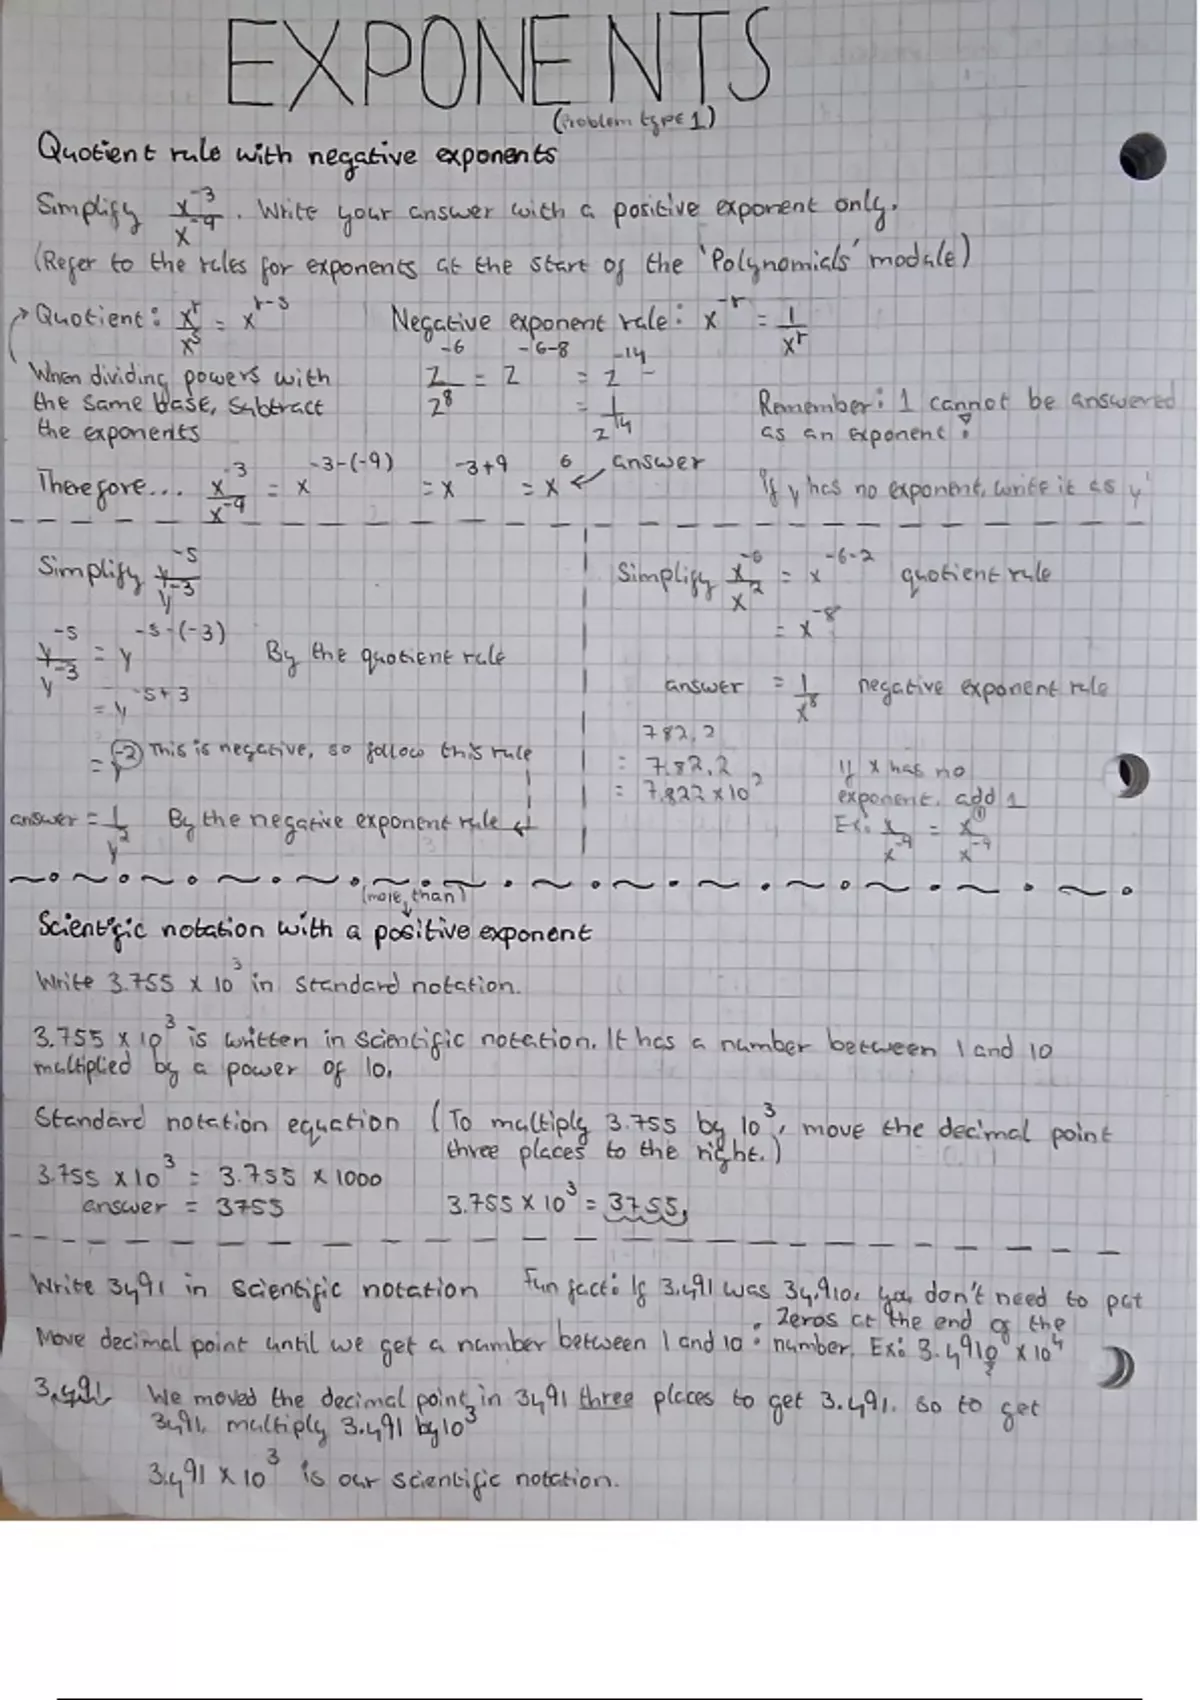 EXPONENTS
(Problem type 1)
Quotient rule with negative exponents
Simplify x^-3/x^-9. Write your answer with a positive exponent only.
(Refer to the rules for exponents at the start of the 'Polynomials' module)
Quotient: x^r/x^s = x^r-s
Negative exponent rule: x^-r = 1/x^r
When dividing powers with
the same base, subtract
the exponents
z^-6/z^8 = z^-6-8 = z^-14
= 1/z^14
Remember: 1 cannot be answered
as an exponent!
Therefore... x^-3/x^-9 = x^-3-(-9) = x^-3+9 = x^6 answer
'If y has no exponent, write it as y'
Simplify y^-5/y^-3
y^-5/y^-3 = y^-5-(-3) By the quotient rule
= y^-5+3
= y^-2 This is negative, so follow this rule
answer = 1/y^2 By the negative exponent rule
Simplify x^-6/x^2 = x^-6-2 quotient rule
= x^-8
answer = 1/x^8 negative exponent rule
782,2
= 7.82,2
= 7.822 x 10^2
If x has no
exponent, add 1
Ex: x/x^-9 = x^1/x^-9
(more than 1)
Scientific notation with a positive exponent
Write 3.755 x 10^3 in standard notation.
3.755 x 10^3 is written in scientific notation. It has a number between 1 and 10
multiplied by a power of 10.
Standard notation equation
(To multiply 3.755 by 10^3, move the decimal point
three places to the right.)
3.755 x 10^3 = 3.755 x 1000
answer = 3755
3.755 x 10^3 = 3755.
Write 3491 in scientific notation
Fun fact: If 3.491 was 34,910, you don't need to put
zeros at the end of the
number. Ex: 3.4910 x 10^4
Move decimal point until we get a number between 1 and 10:
3.491. We moved the decimal point in 3491 three places to get 3.491. so to get
3491, multiply 3.491 by 10^3
3.491 x 10^3 is our scientific notation.